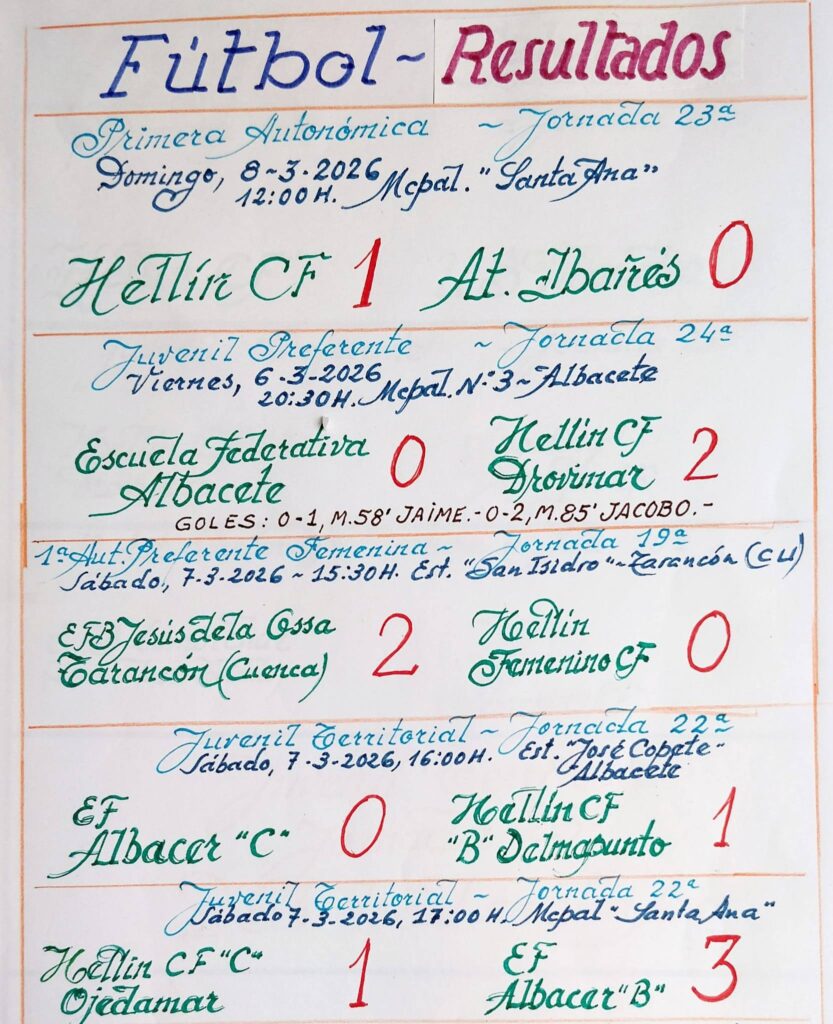 Fútbol - Resultados
Primera Autonómica ~ Jornada 23ª
Domingo, 8-3-2026 Mcpal. "Santa Ana"
12:00H.
Hellín CF 1 At. Ibañés 0
Juvenil Preferente ~ Jornada 24ª
Viernes, 6-3-2026
20:30H. Mcpal. Nº 3 - Albacete
Escuela Federativa 0 Hellín CF 2
Albacete Drovimar
GOLES: 0-1, M.58' JAIME.- 0-2, M.85' JACOBO.-
1ª Aut. Preferente Femenina ~ Jornada 19ª
Sábado, 7-3-2026 ~ 15:30H. Est. "San Isidro" ~ Tarancón (CU)
EFB Jesús de la Ossa 2 Hellín 0
Tarancón (Cuenca) Femenino CF
Juvenil Territorial ~ Jornada 22ª
Sábado, 7-3-2026, 16:00H. Est. "José Copete"
Albacete
EF 0 Hellín CF 1
Albacer "C" "B" Delmapunto
Juvenil Territorial ~ Jornada 22ª
Sábado 7-3-2026, 17:00H. Mcpal "Santa Ana"
Hellín CF "C" 1 EF 3
Ojedamar Albacer "B"